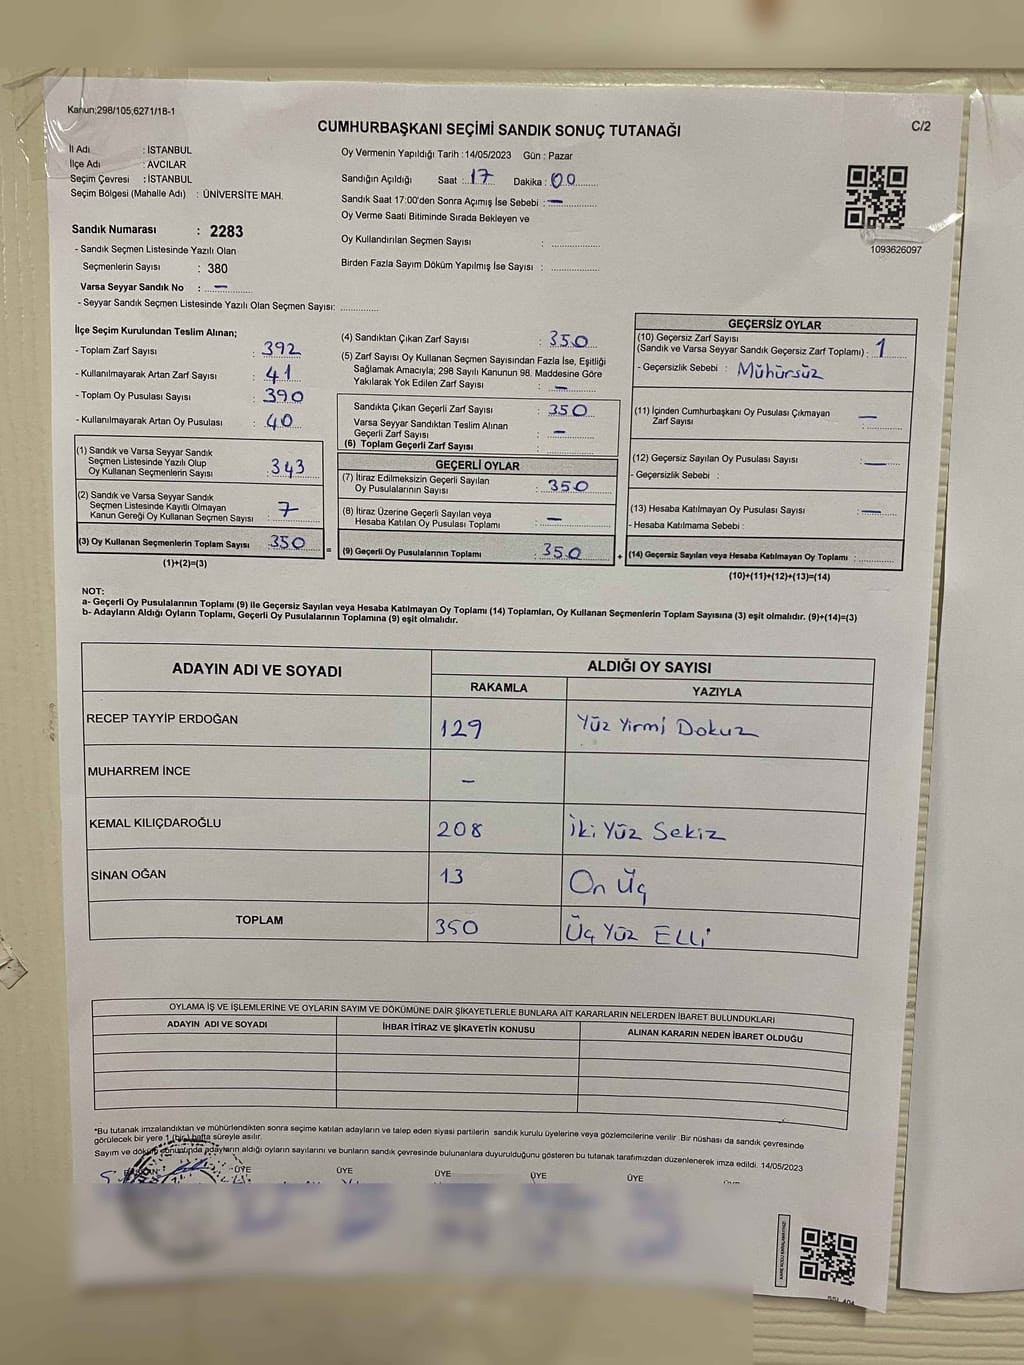 Kanun;298/105;6271/18-1
C/2
CUMHURBAŞKANI SEÇİMİ SANDIK SONUÇ TUTANAĞI
İl Adı : İSTANBUL
İlçe Adı : AVCILAR
Seçim Çevresi : İSTANBUL
Seçim Bölgesi (Mahalle Adı) : ÜNİVERSİTE MAH.
Oy Vermenin Yapıldığı Tarih : 14/05/2023 Gün : Pazar
Sandığın Açıldığı Saat : 17 Dakika : 00
Sandık Saat 17:00'den Sonra Açımış İse Sebebi : —
Oy Verme Saati Bitiminde Sırada Bekleyen ve
Oy Kullandırılan Seçmen Sayısı :
Birden Fazla Sayım Döküm Yapılmış İse Sayısı :
1093626097
Sandık Numarası : 2283
- Sandık Seçmen Listesinde Yazılı Olan
Seçmenlerin Sayısı : 380
Varsa Seyyar Sandık No : —
- Seyyar Sandık Seçmen Listesinde Yazılı Olan Seçmen Sayısı:
İlçe Seçim Kurulundan Teslim Alınan;
- Toplam Zarf Sayısı : 392
- Kullanılmayarak Artan Zarf Sayısı : 41
- Toplam Oy Pusulası Sayısı : 390
- Kullanılmayarak Artan Oy Pusulası : 40
(1) Sandık ve Varsa Seyyar Sandık
Seçmen Listesinde Yazılı Olup
Oy Kullanan Seçmenlerin Sayısı : 343
(2) Sandık ve Varsa Seyyar Sandık
Seçmen Listesinde Kayıtlı Olmayan
Kanun Gereği Oy Kullanan Seçmen Sayısı : 7
(3) Oy Kullanan Seçmenlerin Toplam Sayısı : 350
(1)+(2)=(3)
=
(4) Sandıktan Çıkan Zarf Sayısı : 350
(5) Zarf Sayısı Oy Kullanan Seçmen Sayısından Fazla İse, Eşitliği
Sağlamak Amacıyla; 298 Sayılı Kanunun 98. Maddesine Göre
Yakılarak Yok Edilen Zarf Sayısı : —
Sandıkta Çıkan Geçerli Zarf Sayısı : 350
Varsa Seyyar Sandıktan Teslim Alınan
Geçerli Zarf Sayısı : —
(6) Toplam Geçerli Zarf Sayısı :
GEÇERLİ OYLAR
(7) İtiraz Edilmeksizin Geçerli Sayılan
Oy Pusulalarının Sayısı : 350
(8) İtiraz Üzerine Geçerli Sayılan veya
Hesaba Katılan Oy Pusulası Toplamı : —
(9) Geçerli Oy Pusulalarının Toplamı : 350
+
GEÇERSİZ OYLAR
(10) Geçersiz Zarf Sayısı
(Sandık ve Varsa Seyyar Sandık Geçersiz Zarf Toplamı) : 1
- Geçersizlik Sebebi : Mühürsüz
(11) İçinden Cumhurbaşkanı Oy Pusulası Çıkmayan
Zarf Sayısı : —
(12) Geçersiz Sayılan Oy Pusulası Sayısı : —
- Geçersizlik Sebebi :
(13) Hesaba Katılmayan Oy Pusulası Sayısı : —
- Hesaba Katılmama Sebebi :
(14) Geçersiz Sayılan veya Hesaba Katılmayan Oy Toplamı :
(10)+(11)+(12)+(13)=(14)
NOT:
a- Geçerli Oy Pusulalarının Toplamı (9) ile Geçersiz Sayılan veya Hesaba Katılmayan Oy Toplamı (14) Toplamları, Oy Kullanan Seçmenlerin Toplam Sayısına (3) eşit olmalıdır. (9)+(14)=(3)
b- Adayların Aldığı Oyların Toplamı, Geçerli Oy Pusulalarının Toplamına (9) eşit olmalıdır.
ADAYIN ADI VE SOYADI
ALDIĞI OY SAYISI
RAKAMLA YAZIYLA
RECEP TAYYİP ERDOĞAN 129 Yüz Yirmi Dokuz
MUHARREM İNCE —
KEMAL KILIÇDAROĞLU 208 İki Yüz Sekiz
SİNAN OĞAN 13 On Üç
TOPLAM 350 Üç Yüz ELLİ
OYLAMA İŞ VE İŞLEMLERİNE VE OYLARIN SAYIM VE DÖKÜMÜNE DAİR ŞİKAYETLERLE BUNLARA AİT KARARLARIN NELERDEN İBARET BULUNDUKLARI
ADAYIN ADI VE SOYADI İHBAR İTİRAZ VE ŞİKAYETİN KONUSU ALINAN KARARIN NEDEN İBARET OLDUĞU
*Bu tutanak imzalandıktan ve mühürlendikten sonra seçime katılan adayların ve talep eden siyasi partilerin sandık kurulu üyelerine veya gözlemcilerine verilir. Bir nüshası da sandık çevresinde
görülecek bir yere 1 (bir) hafta süreyle asılır.
Sayım ve döküm sonunda adayların aldığı oyların sayılarını ve bunların sandık çevresinde bulunanlara duyurulduğunu gösteren bu tutanak tarafımızdan düzenlenerek imza edildi. 14/05/2023
BAŞKAN ÜYE ÜYE ÜYE ÜYE ÜYE